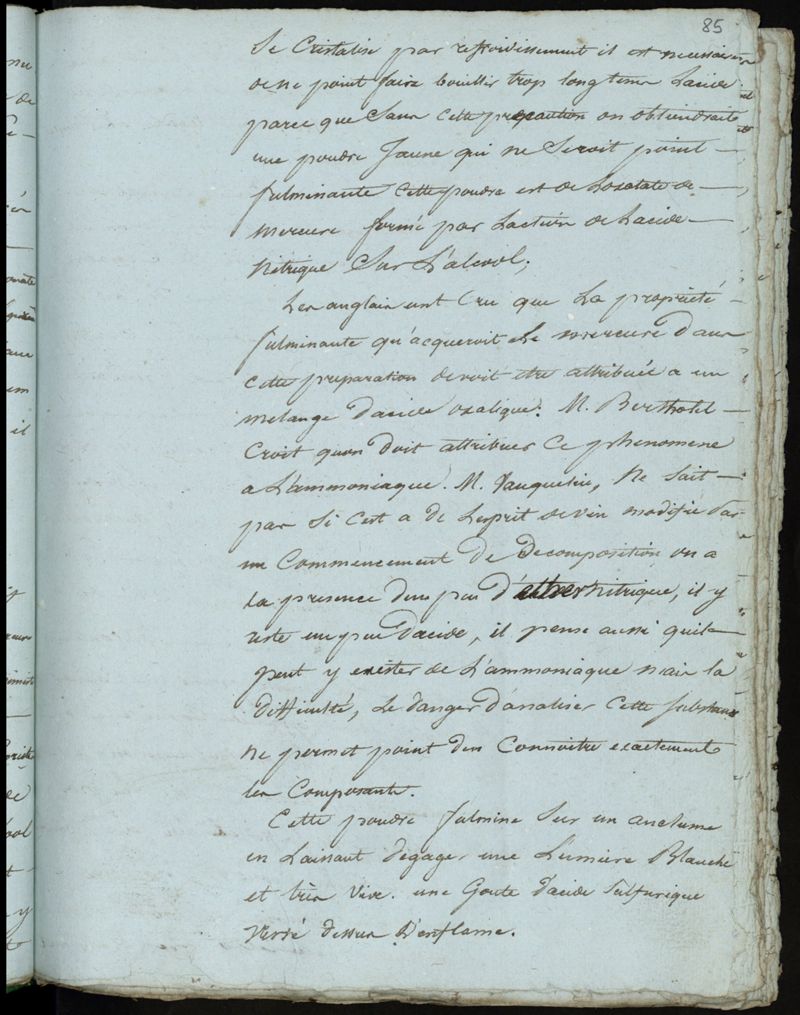 85
Se Cristalise par refroidissement il est necessaire
de ne point faire bouillir trop longtems Lacide
parce que Sans cette precaution on obtiendrait
une poudre Jaune qui ne Seroit point
fulminante cette poudre est de Loxalate de
mercure formé par Laction de Lacide
Nitrique Sur L'alcool;
Les anglais ont Cru que La propriété
fulminante qu'acqueroit Le mercure dans
cette preparation devoit etre attribuée a un
melange d'acide oxalique. M. Berthollet
Croit quon doit attribuer Ce phenomene
a L'ammoniaque. M. Vauquelin, Ne Sait
pas Si C'est a de Lesprit de vin modifié par
un Commencement de Decomposition, ou a
La presence d'un peu d'ether Nitrique, il y
reste un peu d'acide, il pense aussi quil
peut y exister de L'ammoniaque mais la
difficulté, Le danger d'analiser Cette Substance
Ne permet point d'en Connoitre exactement
les Composants.
Cette poudre fulmine Sur un anclume
en Laissant degager une Lumiere Blanche
et très Vive. une Goute d'acide Sulfurique
Versé dessus L'enflame.